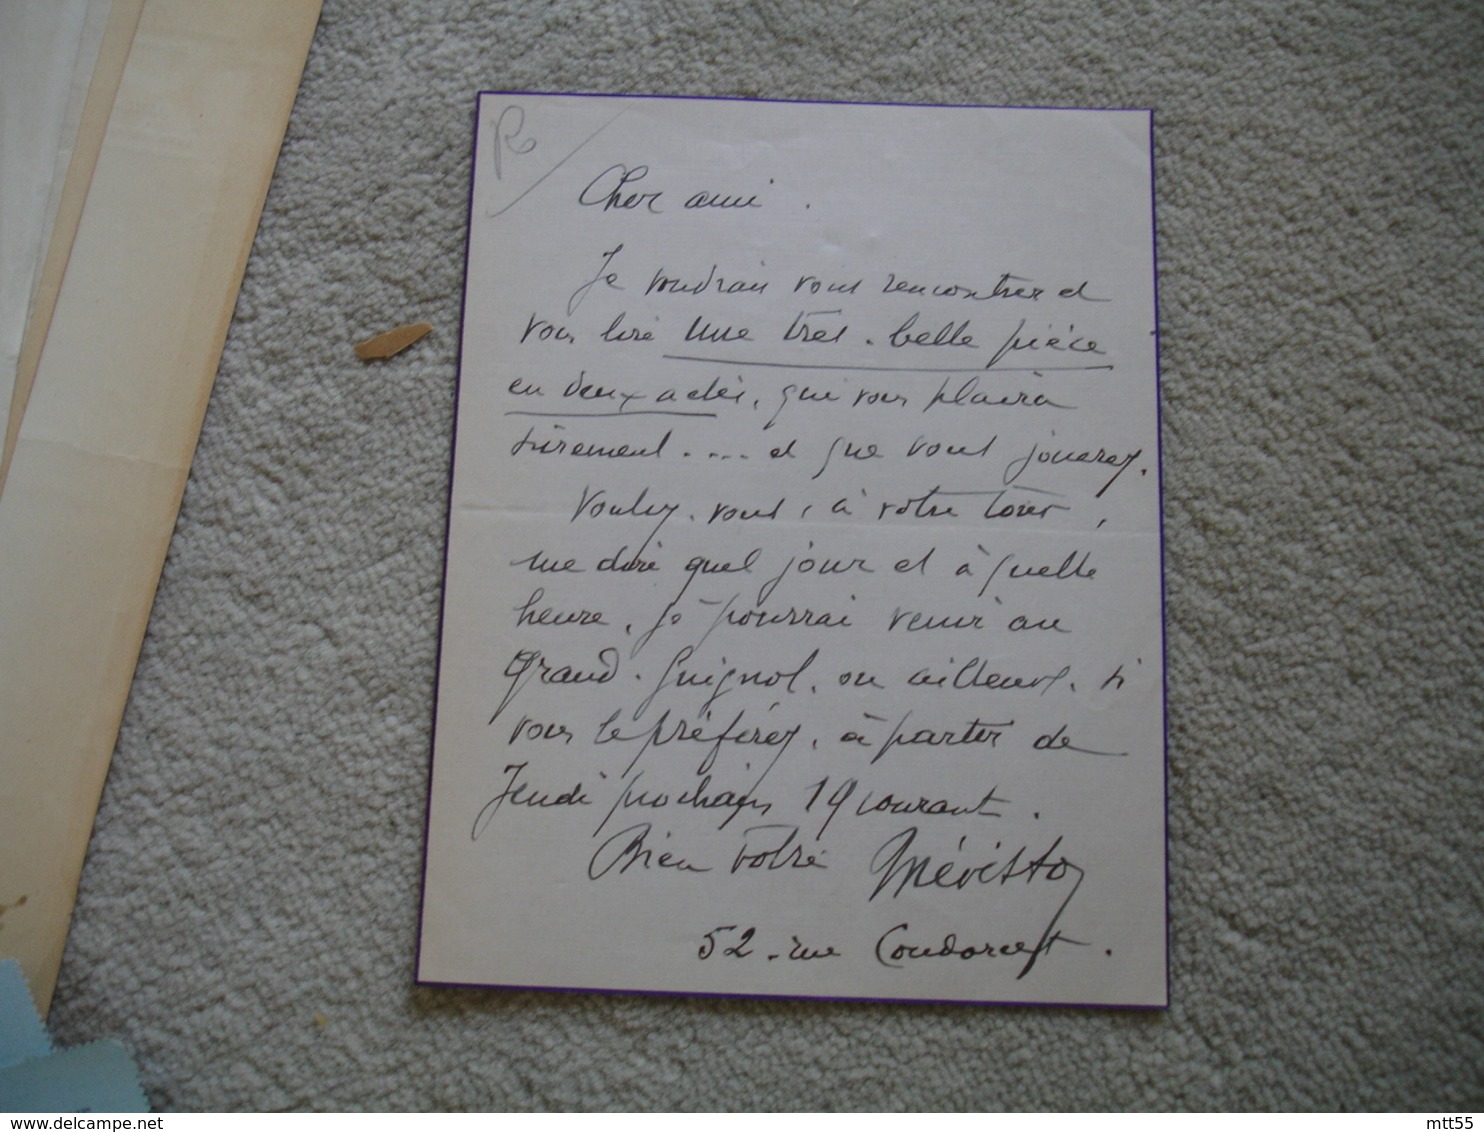 Cher ami.
Je voudrais vous rencontrer et
vous lire une très belle pièce
en deux actes, qui vous plaira
sûrement.... et que vous jouerez.
Voulez-vous, à votre tour,
me dire quel jour et à quelle
heure, je pourrai venir au
Grand-Guignol, ou ailleurs, si
vous le préférez, à partir de
Jeudi prochain 19 courant.
Bien vôtre Mévisto
52 - rue Condorcet.
www.delcampe.net
mtt55